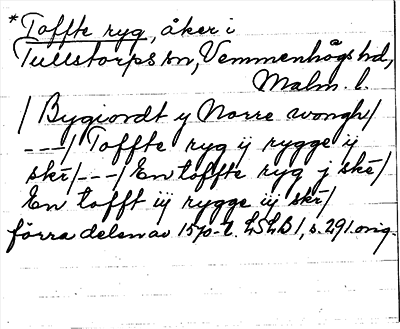 *Toffte ryg, åker i
Tullstorps sn, Vemmenhögs hd,
Malm. l.
/ Bygiordt y Norre wongh/
---/ Toffte ryg ÿ rygge ÿ
skē/---/ En toffte ryg j skē/
En tofft iÿ rygge iÿ skr/
förra delen av 1570-t. LSLB 1, s. 291 orig.